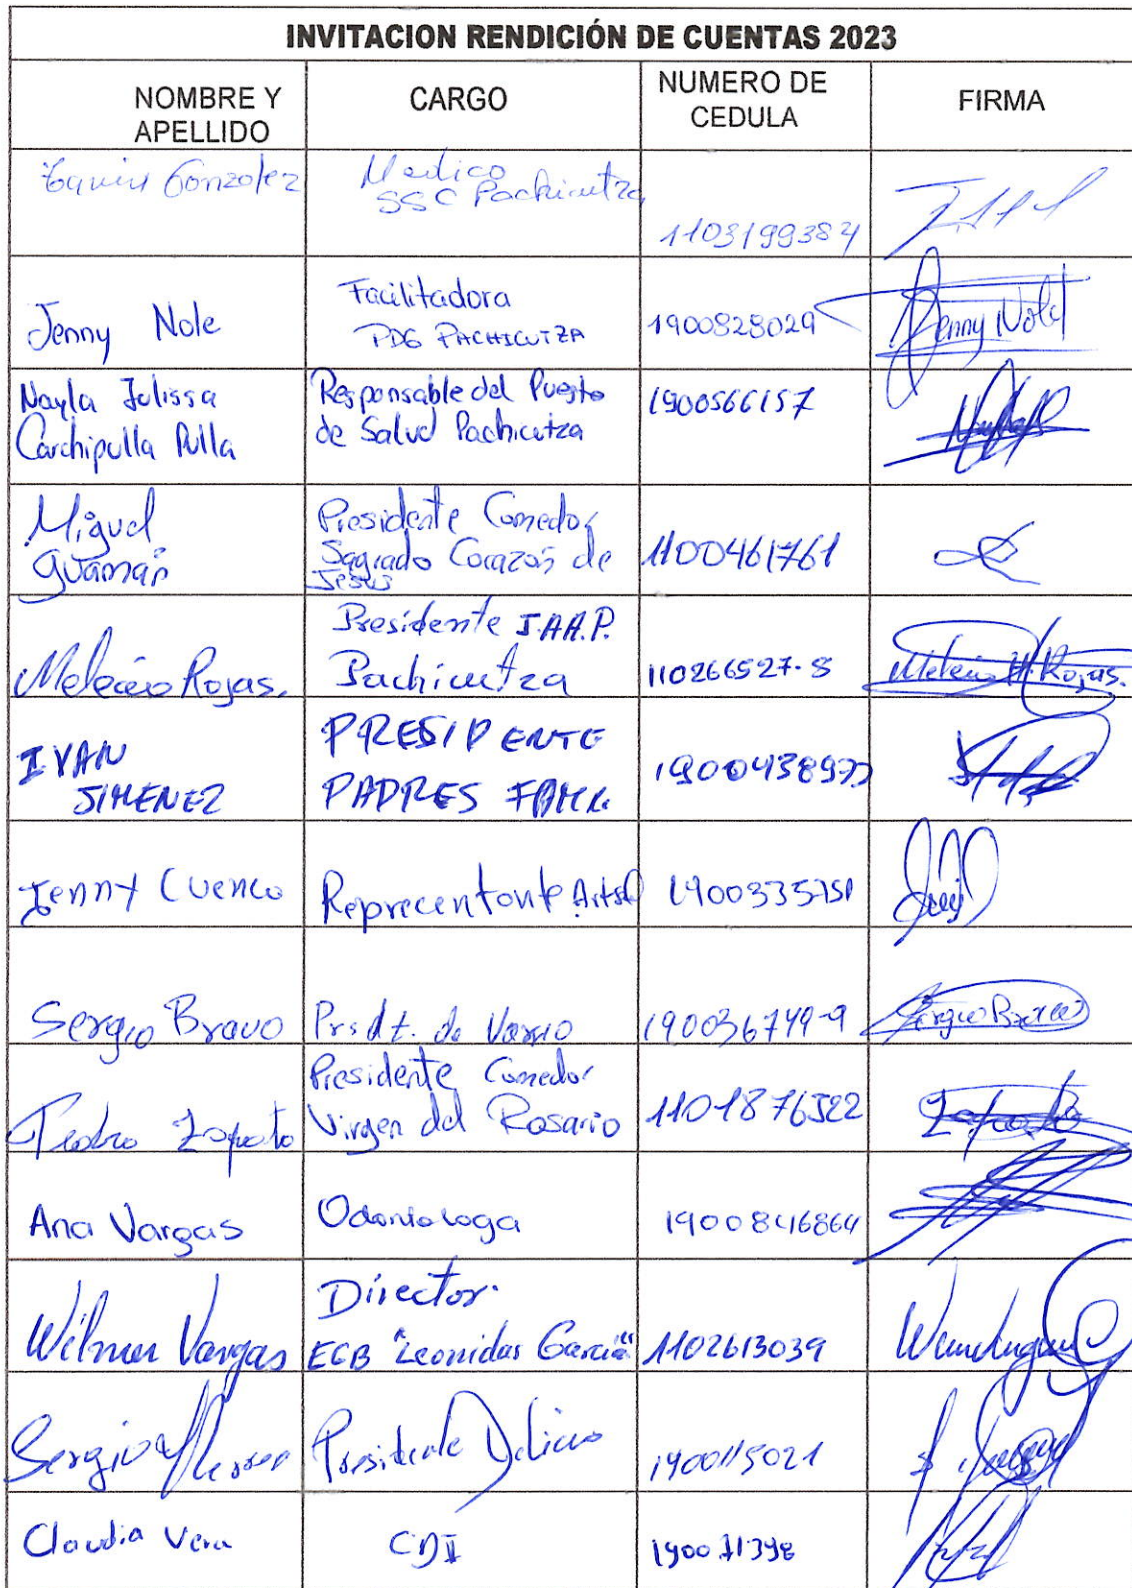 INVITACION RENDICIÓN DE CUENTAS 2023
NOMBRE Y APELLIDO
CARGO
NUMERO DE CEDULA
FIRMA
Gonzalez
Medico
SSC Pachicutza
1103199384
Jenny Nole
Facilitadora
PDG PACHICUTZA
1900828029
Jenny Nole
Nayla Julissa
Carchipulla Pulla
Responsable del Puesto
de Salud Pachicutza
1900566157
Miguel
Guamán
Presidente Comedor
Sagrado Corazón de
Jesús
1100461761
Melecio Rojas.
Presidente J.A.A.P.
Pachicutza
110266527-8
Melecio H. Rojas.
IVAN
JIMENEZ
PRESIDENTE
PADRES FAMI.
Jenny Cuenca
Reprecentante
Sergio Bravo
Prsdt. de Varrio
190036749-9
Sergio Bravo
Pedro Zapata
Presidente Comedor
Virgen del Rosario
1101876522
Zapata
Ana Vargas
Odontologa
1900846864
Wilmer Vargas
Director.
EGB "Leonidas García"
1102613039
Sergio
Presidente Delicias
1900115021
Claudia Vera
CDI